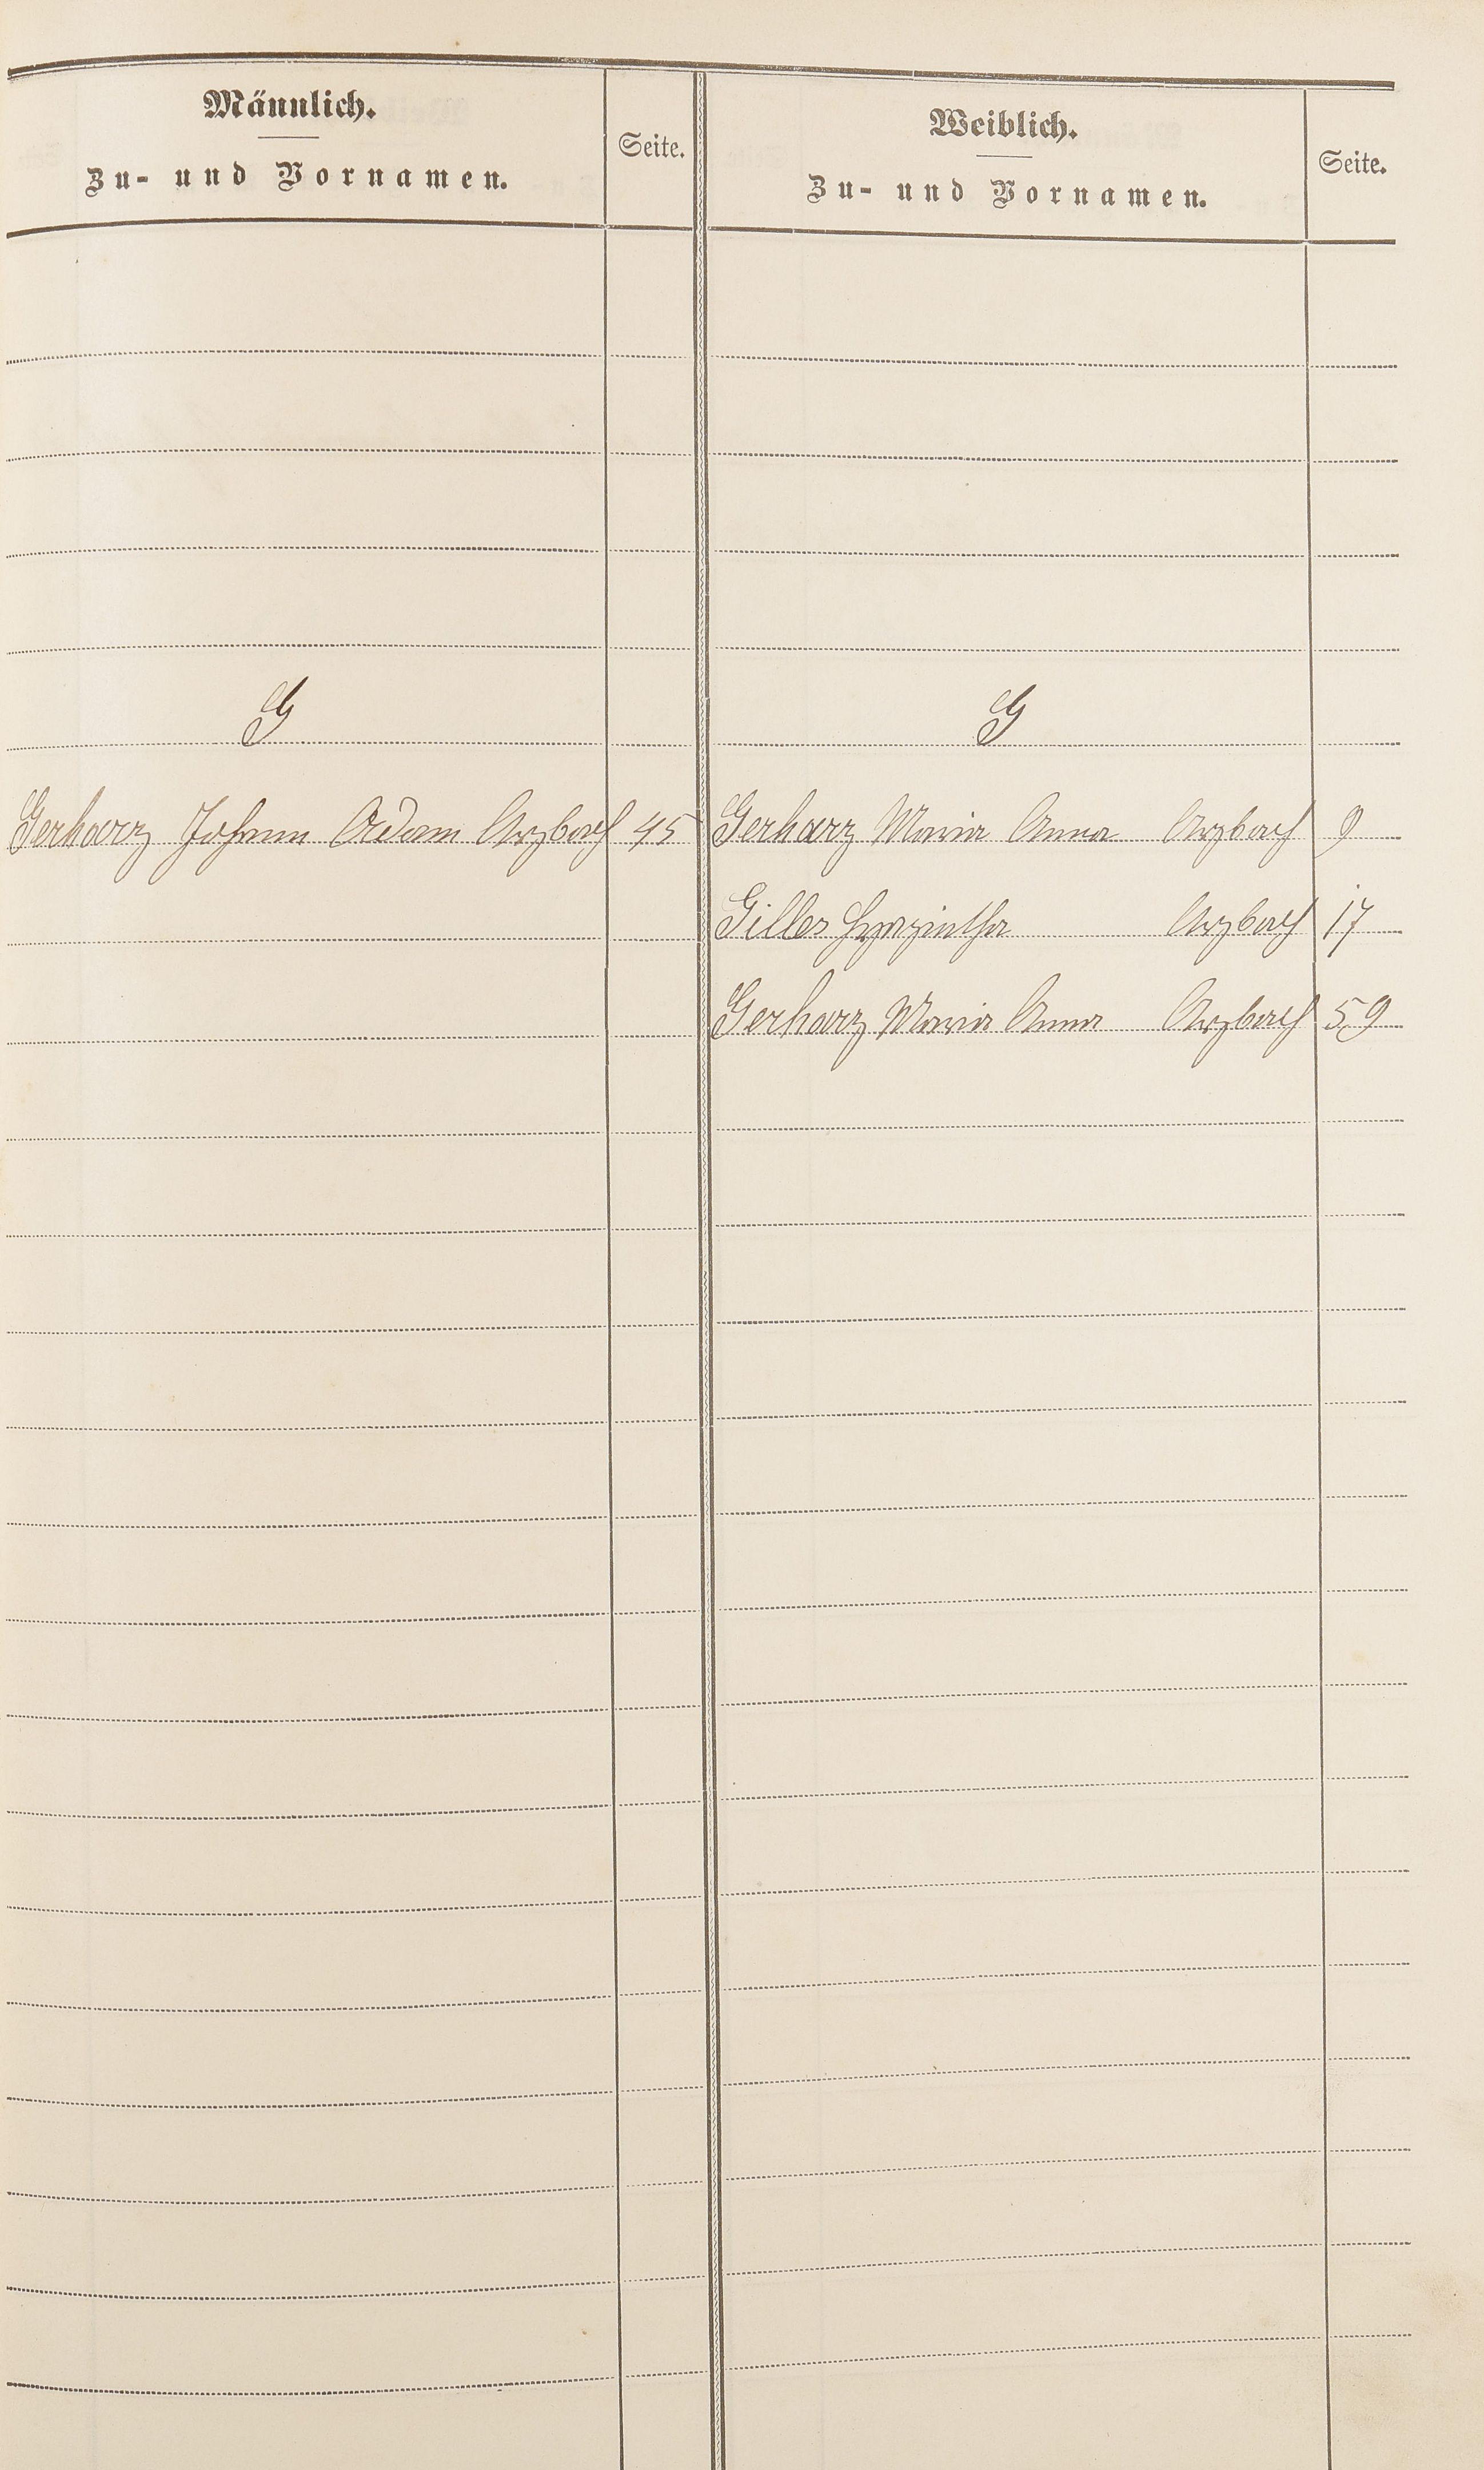 Männlich.
Zu- und Vornamen.
Seite.
Weiblich.
Zu- und Vornamen.
Seite.
G
G
Gerharz Johann Adam Arzbach 45
Gerharz Maria Anna Arzbach 9
Gilles Hyazintha Arzbach 17
Gerharz Maria Anna Arzbach 59